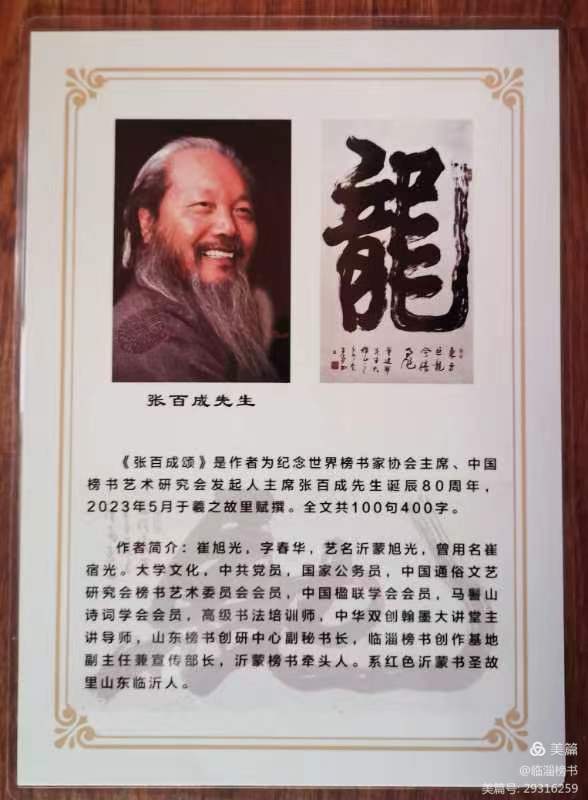 龍
张百成先生
《张百成颂》是作者为纪念世界榜书家协会主席、中国
榜书艺术研究会发起人主席张百成先生诞辰80周年，
2023年5月于羲之故里赋撰。全文共100句400字。
作者简介：崔旭光，字春华，艺名沂蒙旭光，曾用名崔
宿光。大学文化，中共党员，国家公务员，中国通俗文艺
研究会榜书艺术委员会会员，中国楹联学会会员，马髻山
诗词学会会员，高级书法培训师，中华双创翰墨大讲堂主
讲导师，山东榜书创研中心副秘书长，临淄榜书创作基地
副主任兼宣传部长，沂蒙榜书牵头人。系红色沂蒙书圣故
里山东临沂人。
美篇
@临淄榜书
美篇号: 29316259